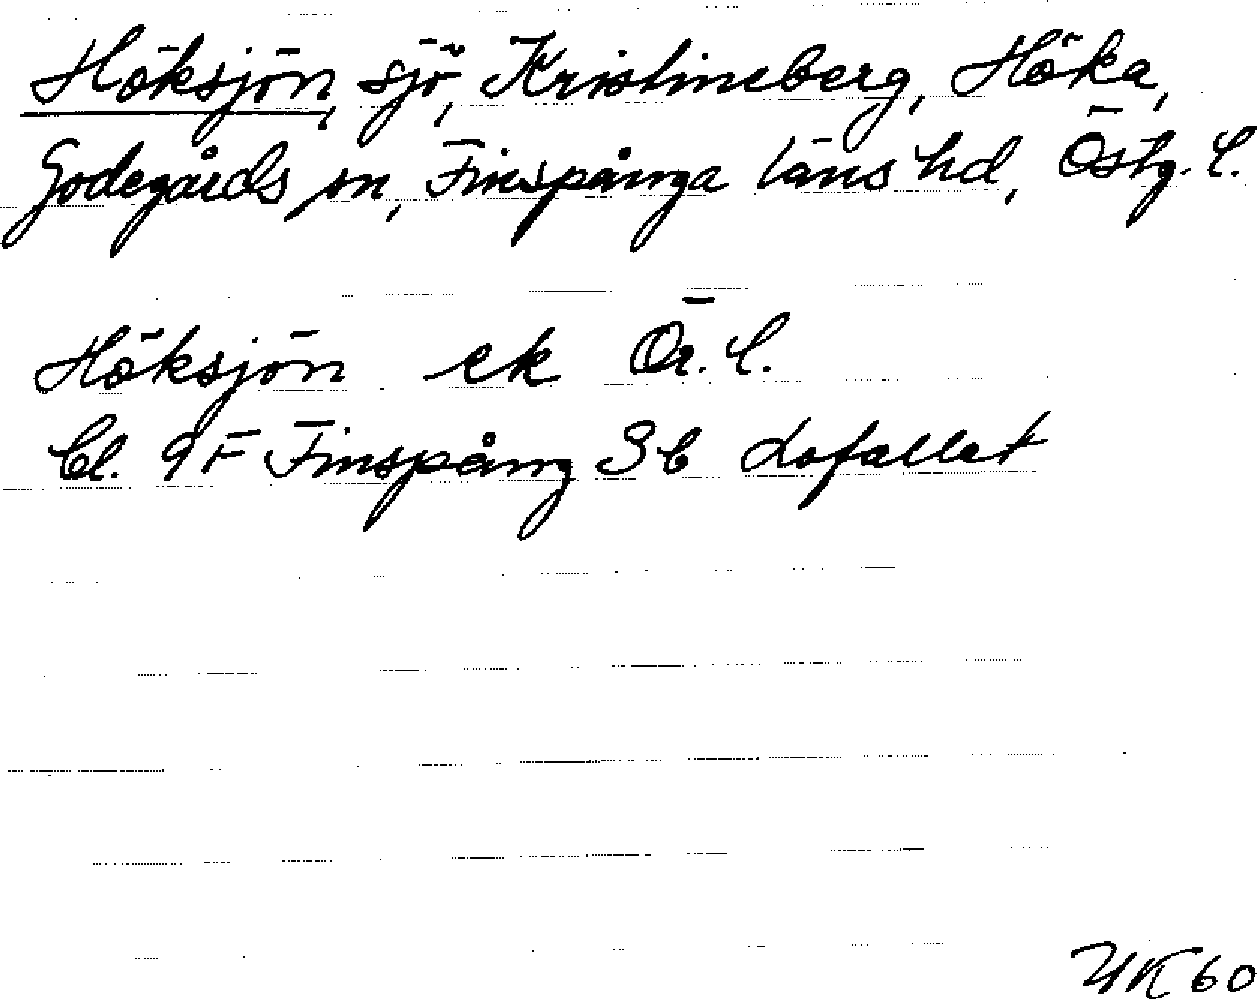 Höksjön, sjö, Kristineberg, Höka,
Godegårds sn, Finspånga läns hd, Östg. l.
Höksjön ek Ör. l.
Bl. 9 F Finspång Sb Lofallet
YK 60